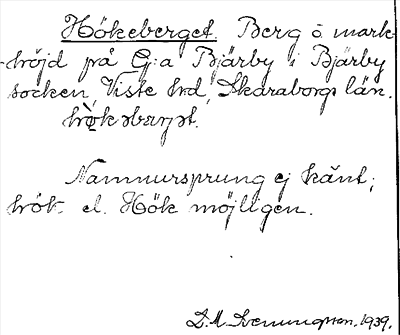 Hökeberget. Berg o mark-
-höjd på G:a Bjärby i Bjärby
socken, Viste hrd, Skaraborgs län.
Namnursprung ej känt;
hök- el. Hök möjligen.
D.M. Svenungsson. 1939.